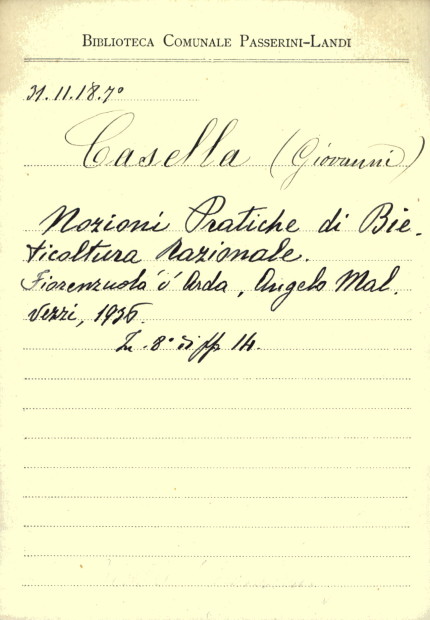 BIBLIOTECA COMUNALE PASSERINI-LANDI
Casella (Giovanni)
Nozioni Pratiche di Bie-
ticoltura Razionale.
Fiorenzuola d'Arda, Angelo Mal.
vezzi, 1936.
In 8° di pp 14.